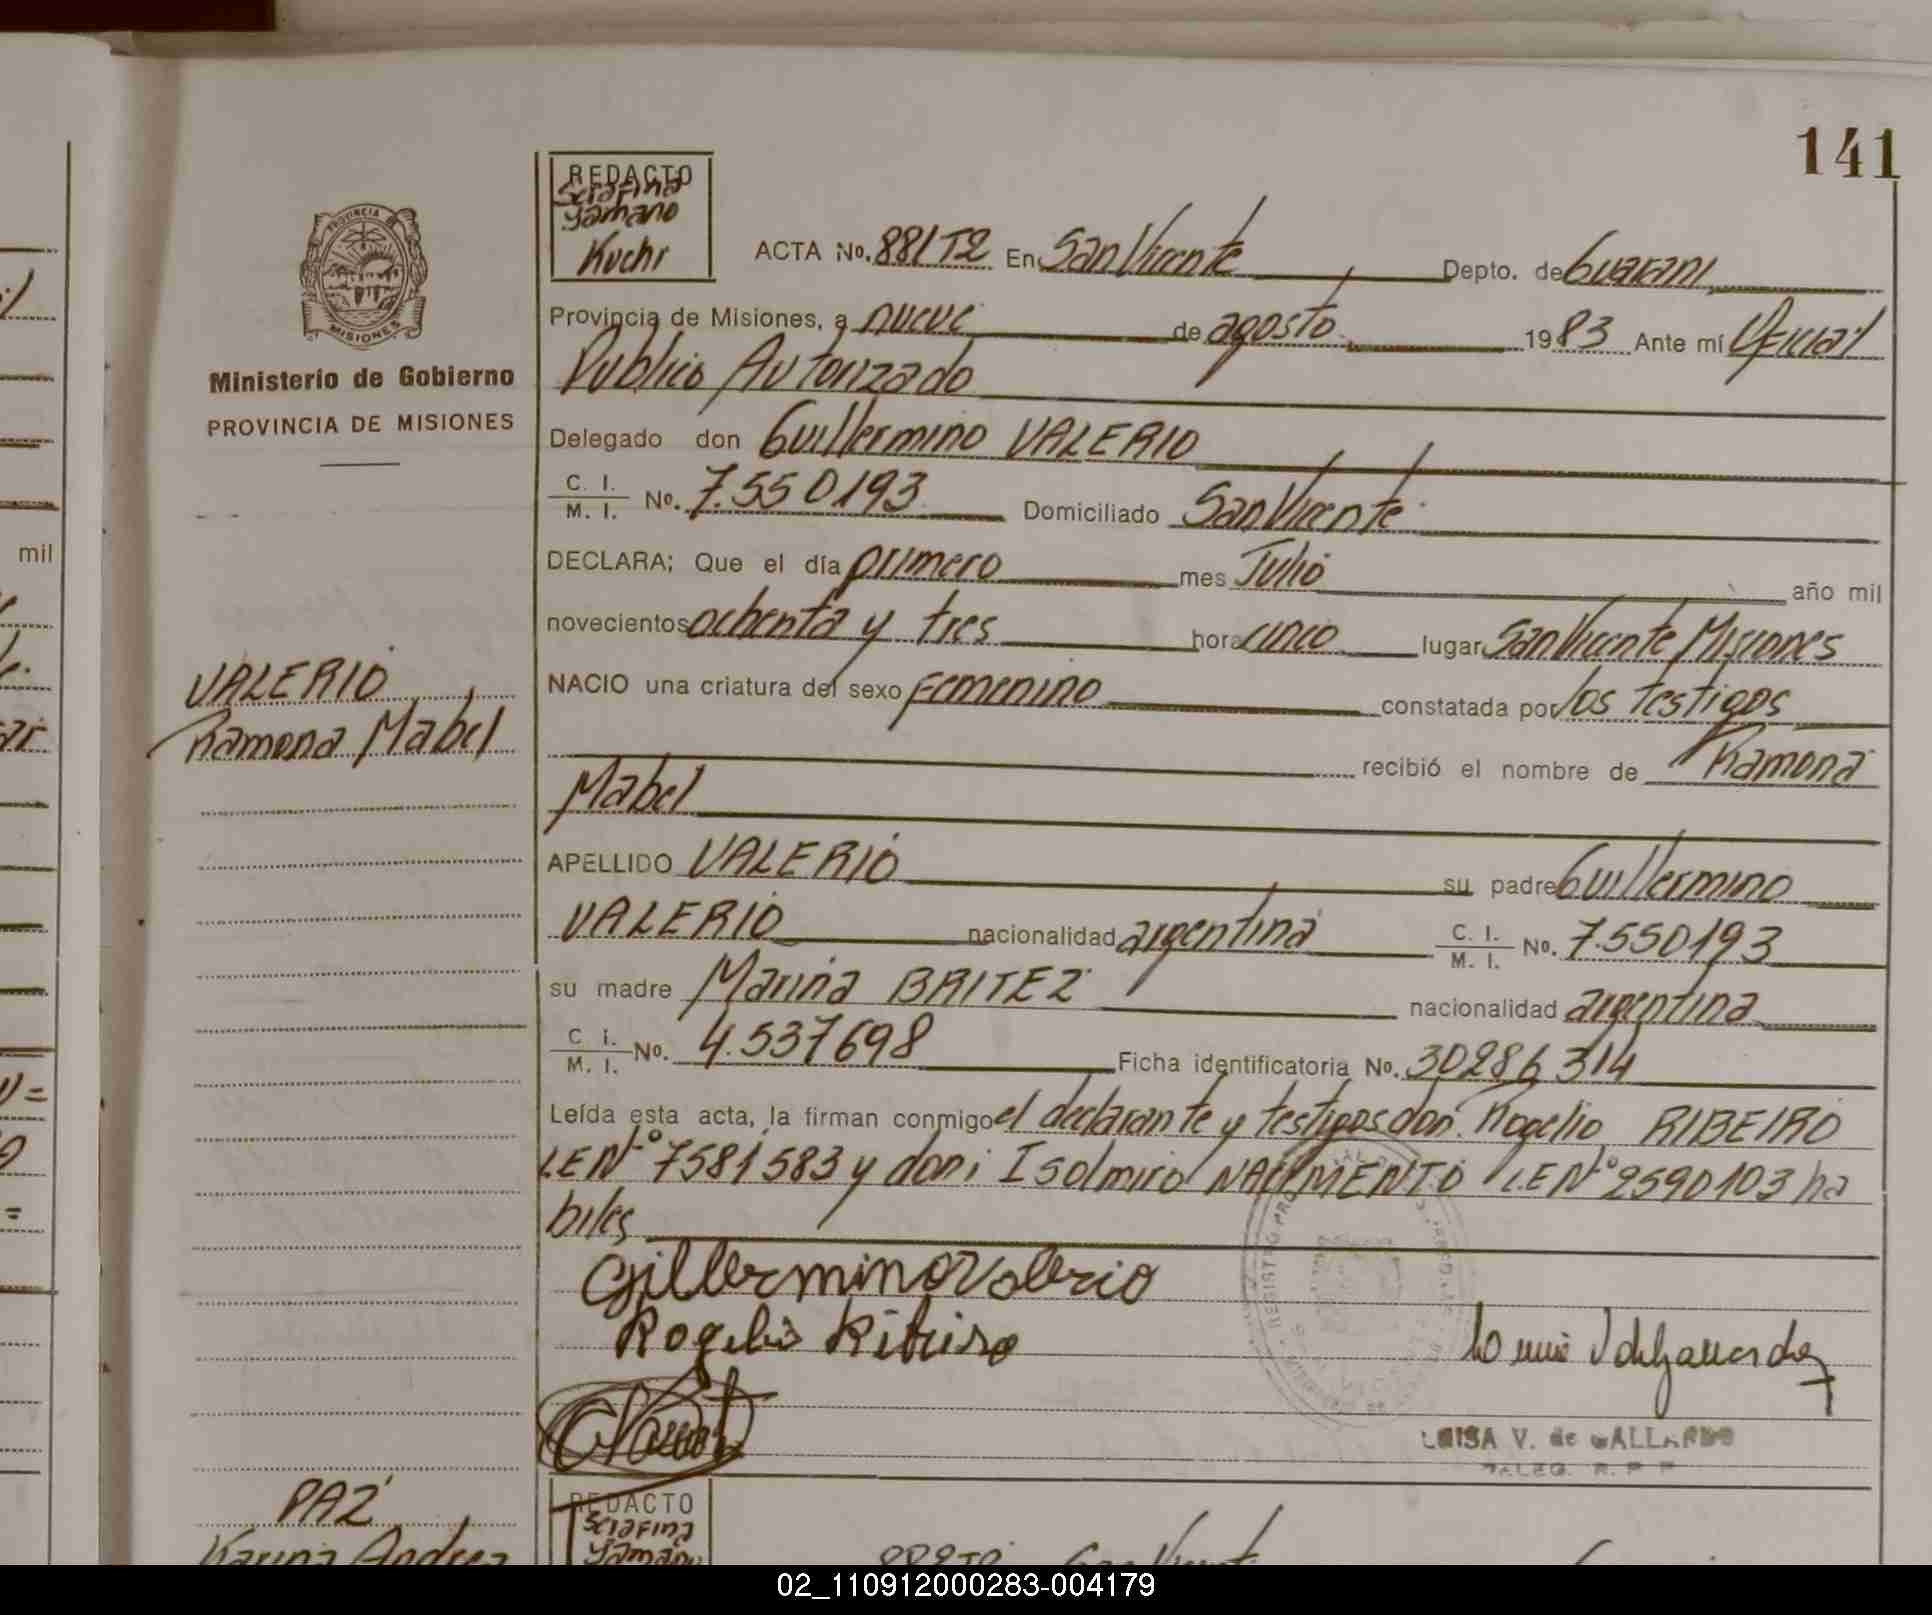 141
REDACTO
Serafina
Yamano
Kuchi
PROVINCIA DE
MISIONES
Ministerio de Gobierno
PROVINCIA DE MISIONES
ACTA No. 881T2 En San Vicente Depto. de Guarani
Provincia de Misiones, a nueve de agosto 1983 Ante mí Oficial
Publico Autorizado
Delegado don Guillermino VALERIO
C. I. / M. I. No. 7.550193 Domiciliado San Vicente
DECLARA; Que el día primero mes Julio año mil
novecientos ochenta y tres hora cinco lugar San Vicente Misiones
NACIO una criatura del sexo Femenino constatada por los testigos
recibió el nombre de Ramona
Mabel
VALERIO
Ramona Mabel
APELLIDO VALERIO su padre Guillermino
VALERIO nacionalidad argentina C. I. / M. I. No. 7.550193
su madre Marina BRITEZ nacionalidad argentina
C. I. / M. I. No. 4.537698 Ficha identificatoria No. 30286314
Leída esta acta, la firman conmigo el declarante y testigos don: Rogelio RIBEIRO
LEN° 7581583 y don: Isolmiro NACIMENTO LEN° 2590103 ha
biles
Gillermino Valerio
Rogelio Ribeiro
LUISA V. de GALLARDO
DELEG. R. P. P
PAZ
Karina Andrea
REDACTO
Serafina
Yamano
882T2 San Vicente
mil
02_110912000283-004179